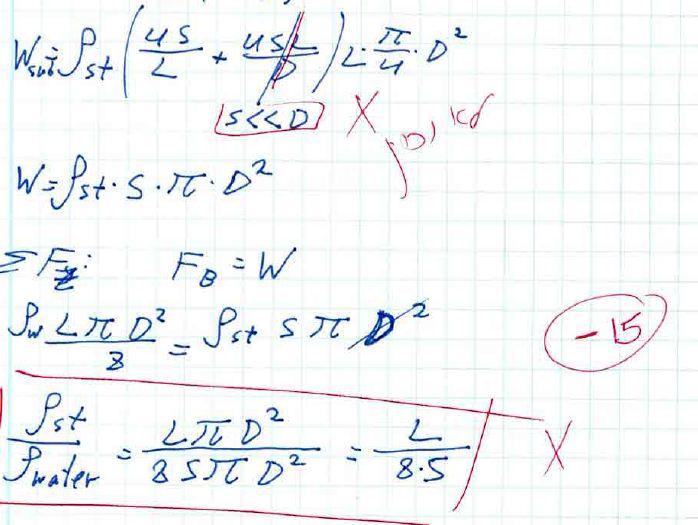 W = ρst (4S/L + 4SL/D) L · π/4 · D²
S<<D X
W = ρst · S · π · D²
ΣFz: F_B = W
ρw LπD²/8 = ρst S π D²
-15
ρst/ρwater = LπD²/8SπD² = L/8·S X